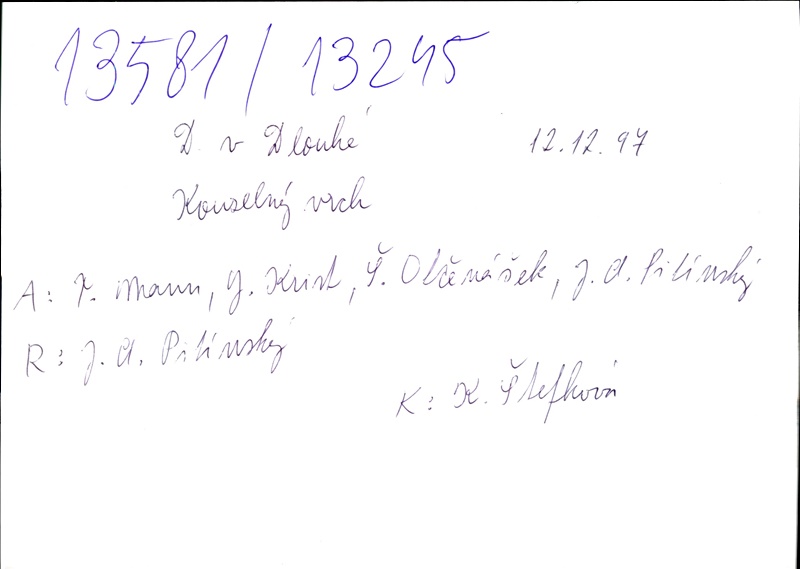 13581 / 13245
D. v Dlouhé 12.12.97
Kouzelný vrch
A: T. Mann, J. Krist, Š. Otčenášek, J. A. Pitínský
R: J. A. Pitínský
K: K. Štefková